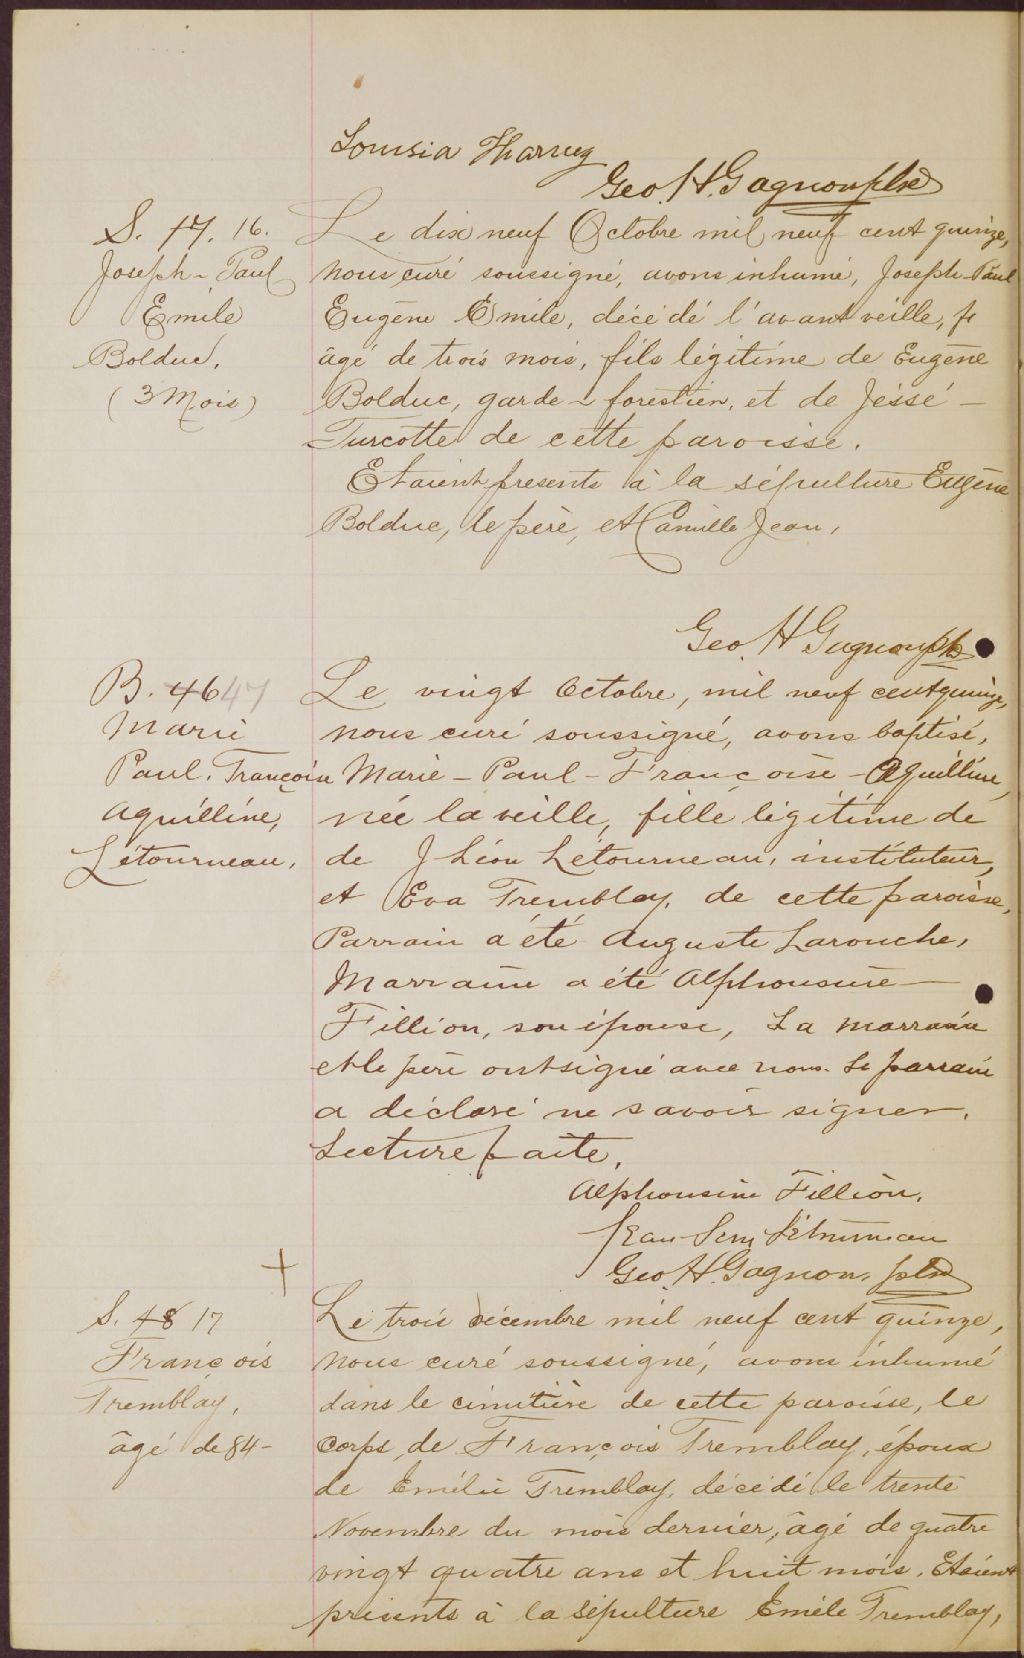 Lousia Harvey
Geo. H. Gagnon ptre
S. 17. 16.
Joseph-Paul
Emile
Bolduc.
(3 Mois)
Le dix neuf Octobre mil neuf cent quinze,
nous curé soussigné, avons inhumé, Joseph-Paul
Eugène Emile, décédé l'avant veille,
âgé de trois mois, fils légitime de Eugène
Bolduc, garde-forestier, et de Jéssé -
Turcotte de cette paroisse.
Etaient presents à la sépulture Eugène
Bolduc, le père, et Camille Jean.
Geo. H Gagnon ptr
B. 46 47
Marie
Paul. Françoise
Aquilline,
Létourneau.
Le vingt Octobre, mil neuf cent quinze,
nous curé soussigné, avons baptisé,
Marie-Paul-Françoise-Aquilline,
née la veille, fille légitime de
de J Léon Létourneau, instituteur,
et Eva Tremblay, de cette paroisse,
Parrain a été Auguste Larouche,
Marraine a été Alphonsine -
Fillion, son épouse, La marraine
et le père ont signé avec nous. Le parrain
a déclaré ne savoir signer.
Lecture faite.
Alphonsine Fillion.
Jean Létourneau
Geo. H. Gagnon. ptre
+
S. 48 17
François
Tremblay,
âgé de 84-
Le trois décembre mil neuf cent quinze,
nous curé soussigné, avons inhumé
dans le cimitière de cette paroisse, le
corps, de François Tremblay, époux
de Emélie Tremblay, décédé le trente
Novembre du mois dernier, âgé de quatre
vingt quatre ans et huit mois. Etaient
présents à la sépulture Eméle Tremblay,